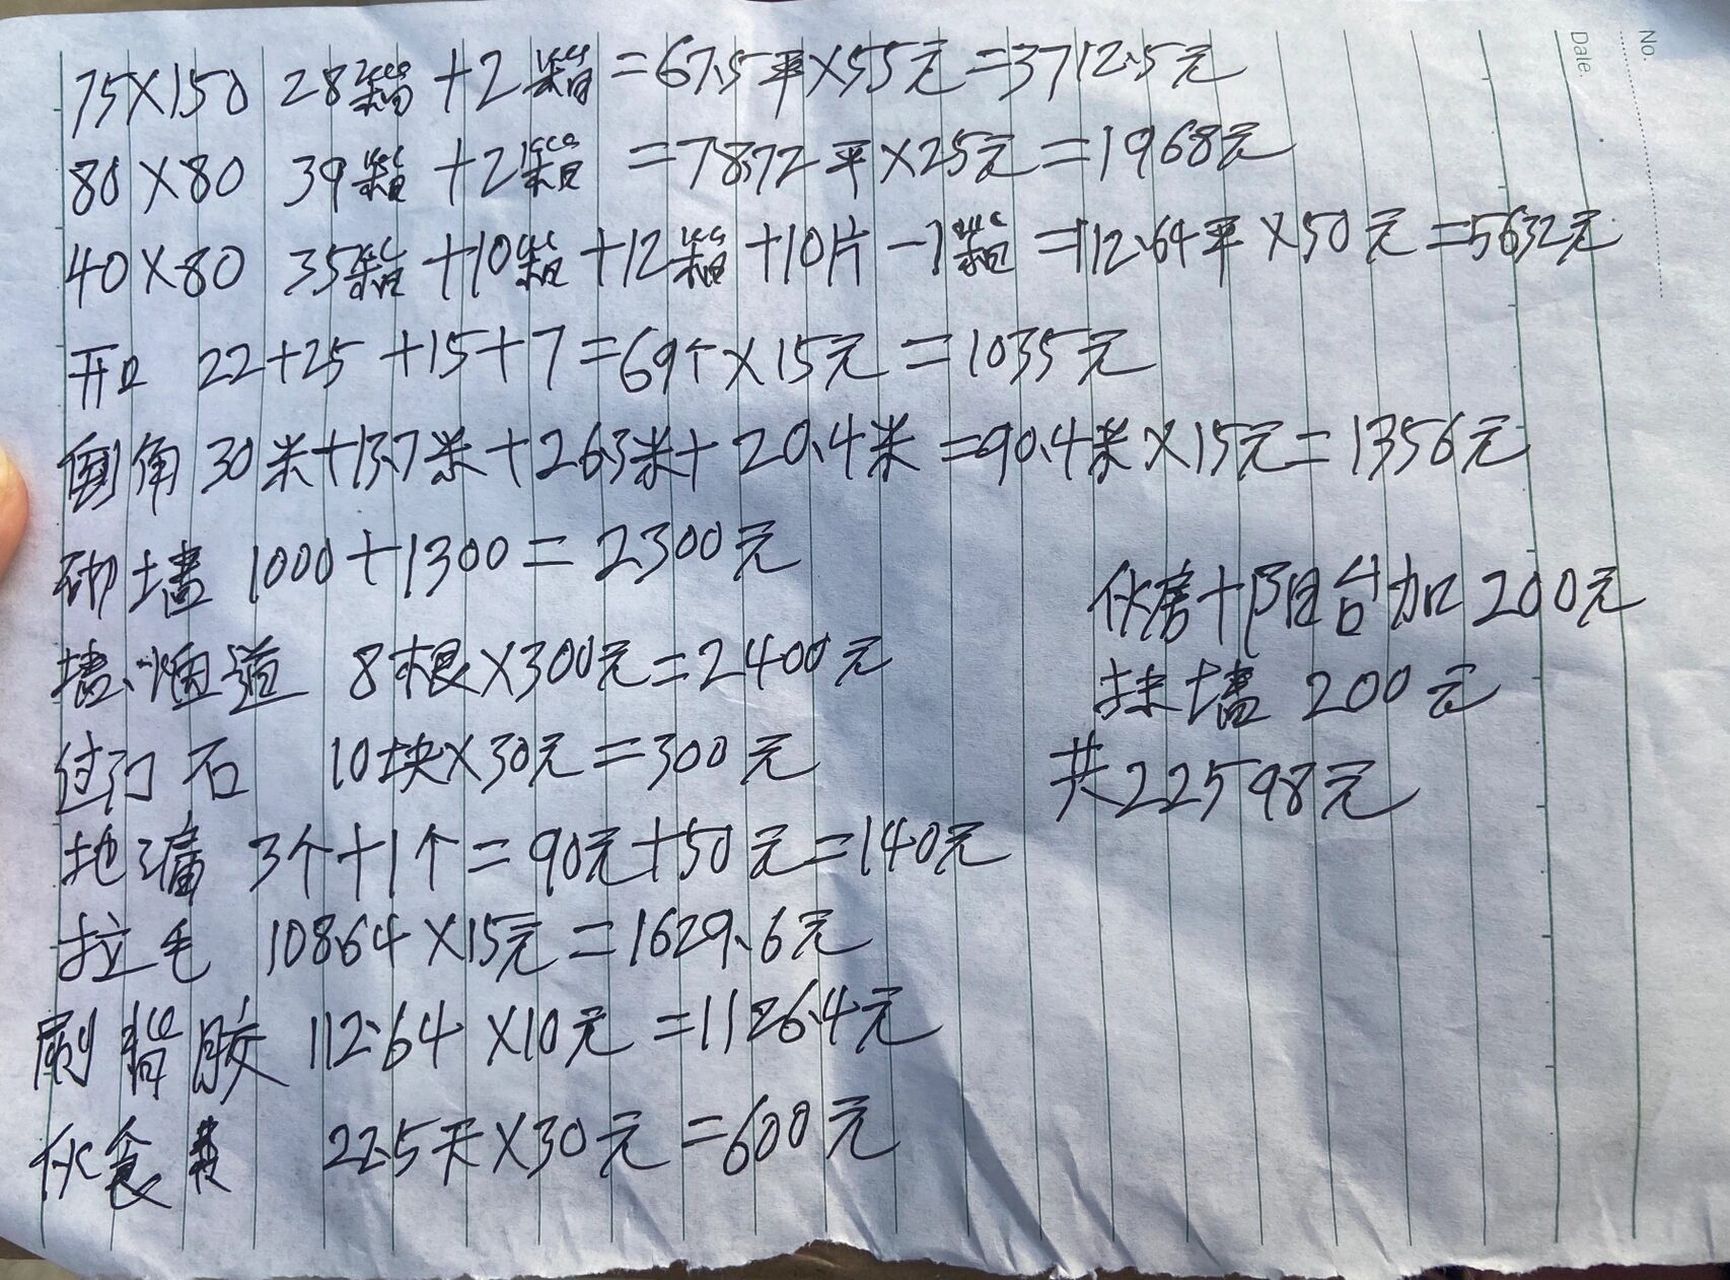 No.
Date.
75×150 28箱+2箱=67.5平×55元=3712.5元
80×80 39箱+2箱=78.72平×25元=1968元
40×80 35箱+10箱+12箱+10片-1箱=112.64平×50元=5632元
开口 22+25+15+7=69个×15元=1035元
倒角30米+13.7米+26.3米+20.4米=90.4米×15元=1356元
砌墙 1000+1300=2300元
墙.烟道 8根×300元=2400元
过门石 10块×30元=300元
地漏 3个+1个=90元+50元=140元
拉毛 108.64×15元=1629.6元
刷背胶 112.64×10元=1126.4元
伙食费 22.5天×30元=600元
伙房+阳台加200元
抹墙 200元
共22598元